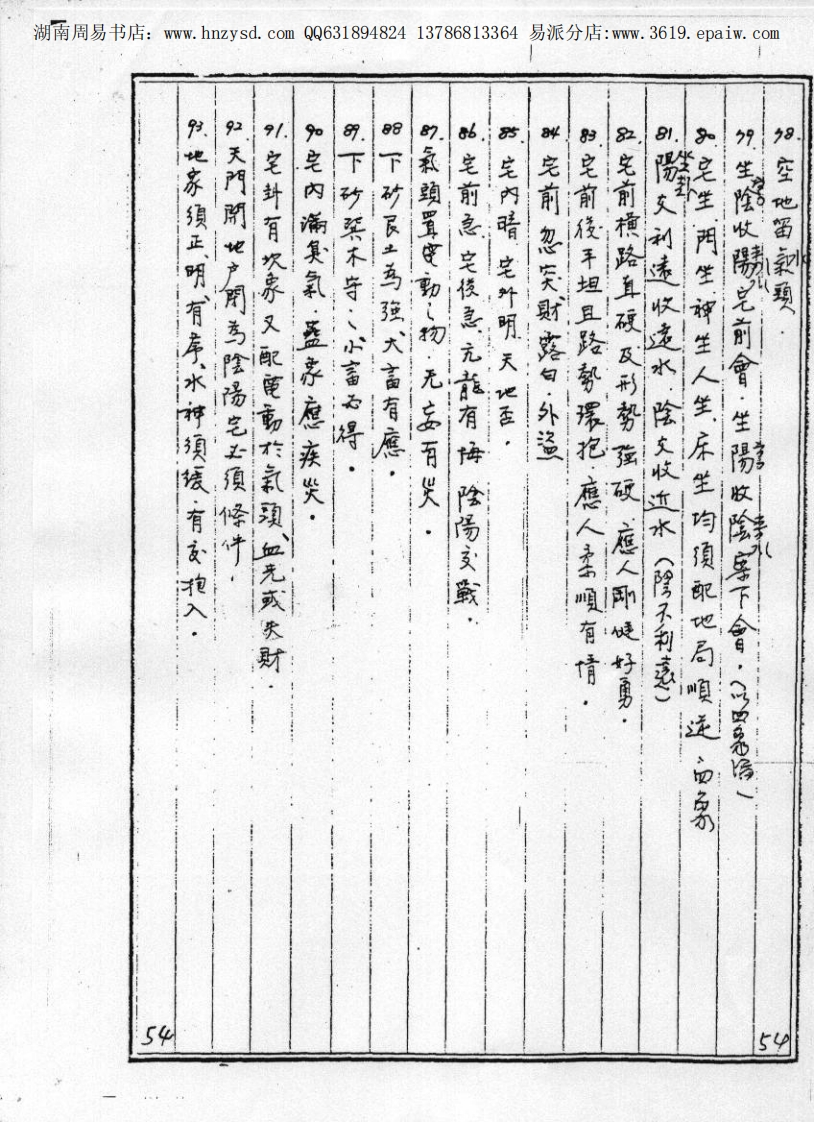 湖南周易书店：www.hnzysd.com QQ631894824 13786813364 易派分店:www.3619.epaiw.com
78. 空地留氣頭.
79. 坐陰收陽宅前會.坐陽收陰案下會.(以四象論)
80. 宅坐.門坐神坐人坐.床坐均須配地局順逆 四象
坐卦
81. 陽爻利遠收遠水 陰爻收近水(陰不利遠)
82. 宅前橫路直硬及形勢強硬.應人剛健好勇.
83. 宅前後平坦且路勢環抱.應人柔順有情.
84. 宅前忽突財露白.外盜
85. 宅內暗宅外明.天地否.
86. 宅前急.宅後急.亢龍有悔 陰陽交戰.
87. 氣頭置電動之物.无妄有災.
88. 下砂艮土為強、大畜有應.
89. 下砂巽木守、小畜必得.
90. 宅內滿臭氣.蠱象應疾災.
91. 宅卦有坎象又配電動於氣頭、血光或失財.
92. 天門開地戶閉為陰陽宅必須條件.
93. 地家須正、明、有序、水神須緩.有交抱入.
54
54